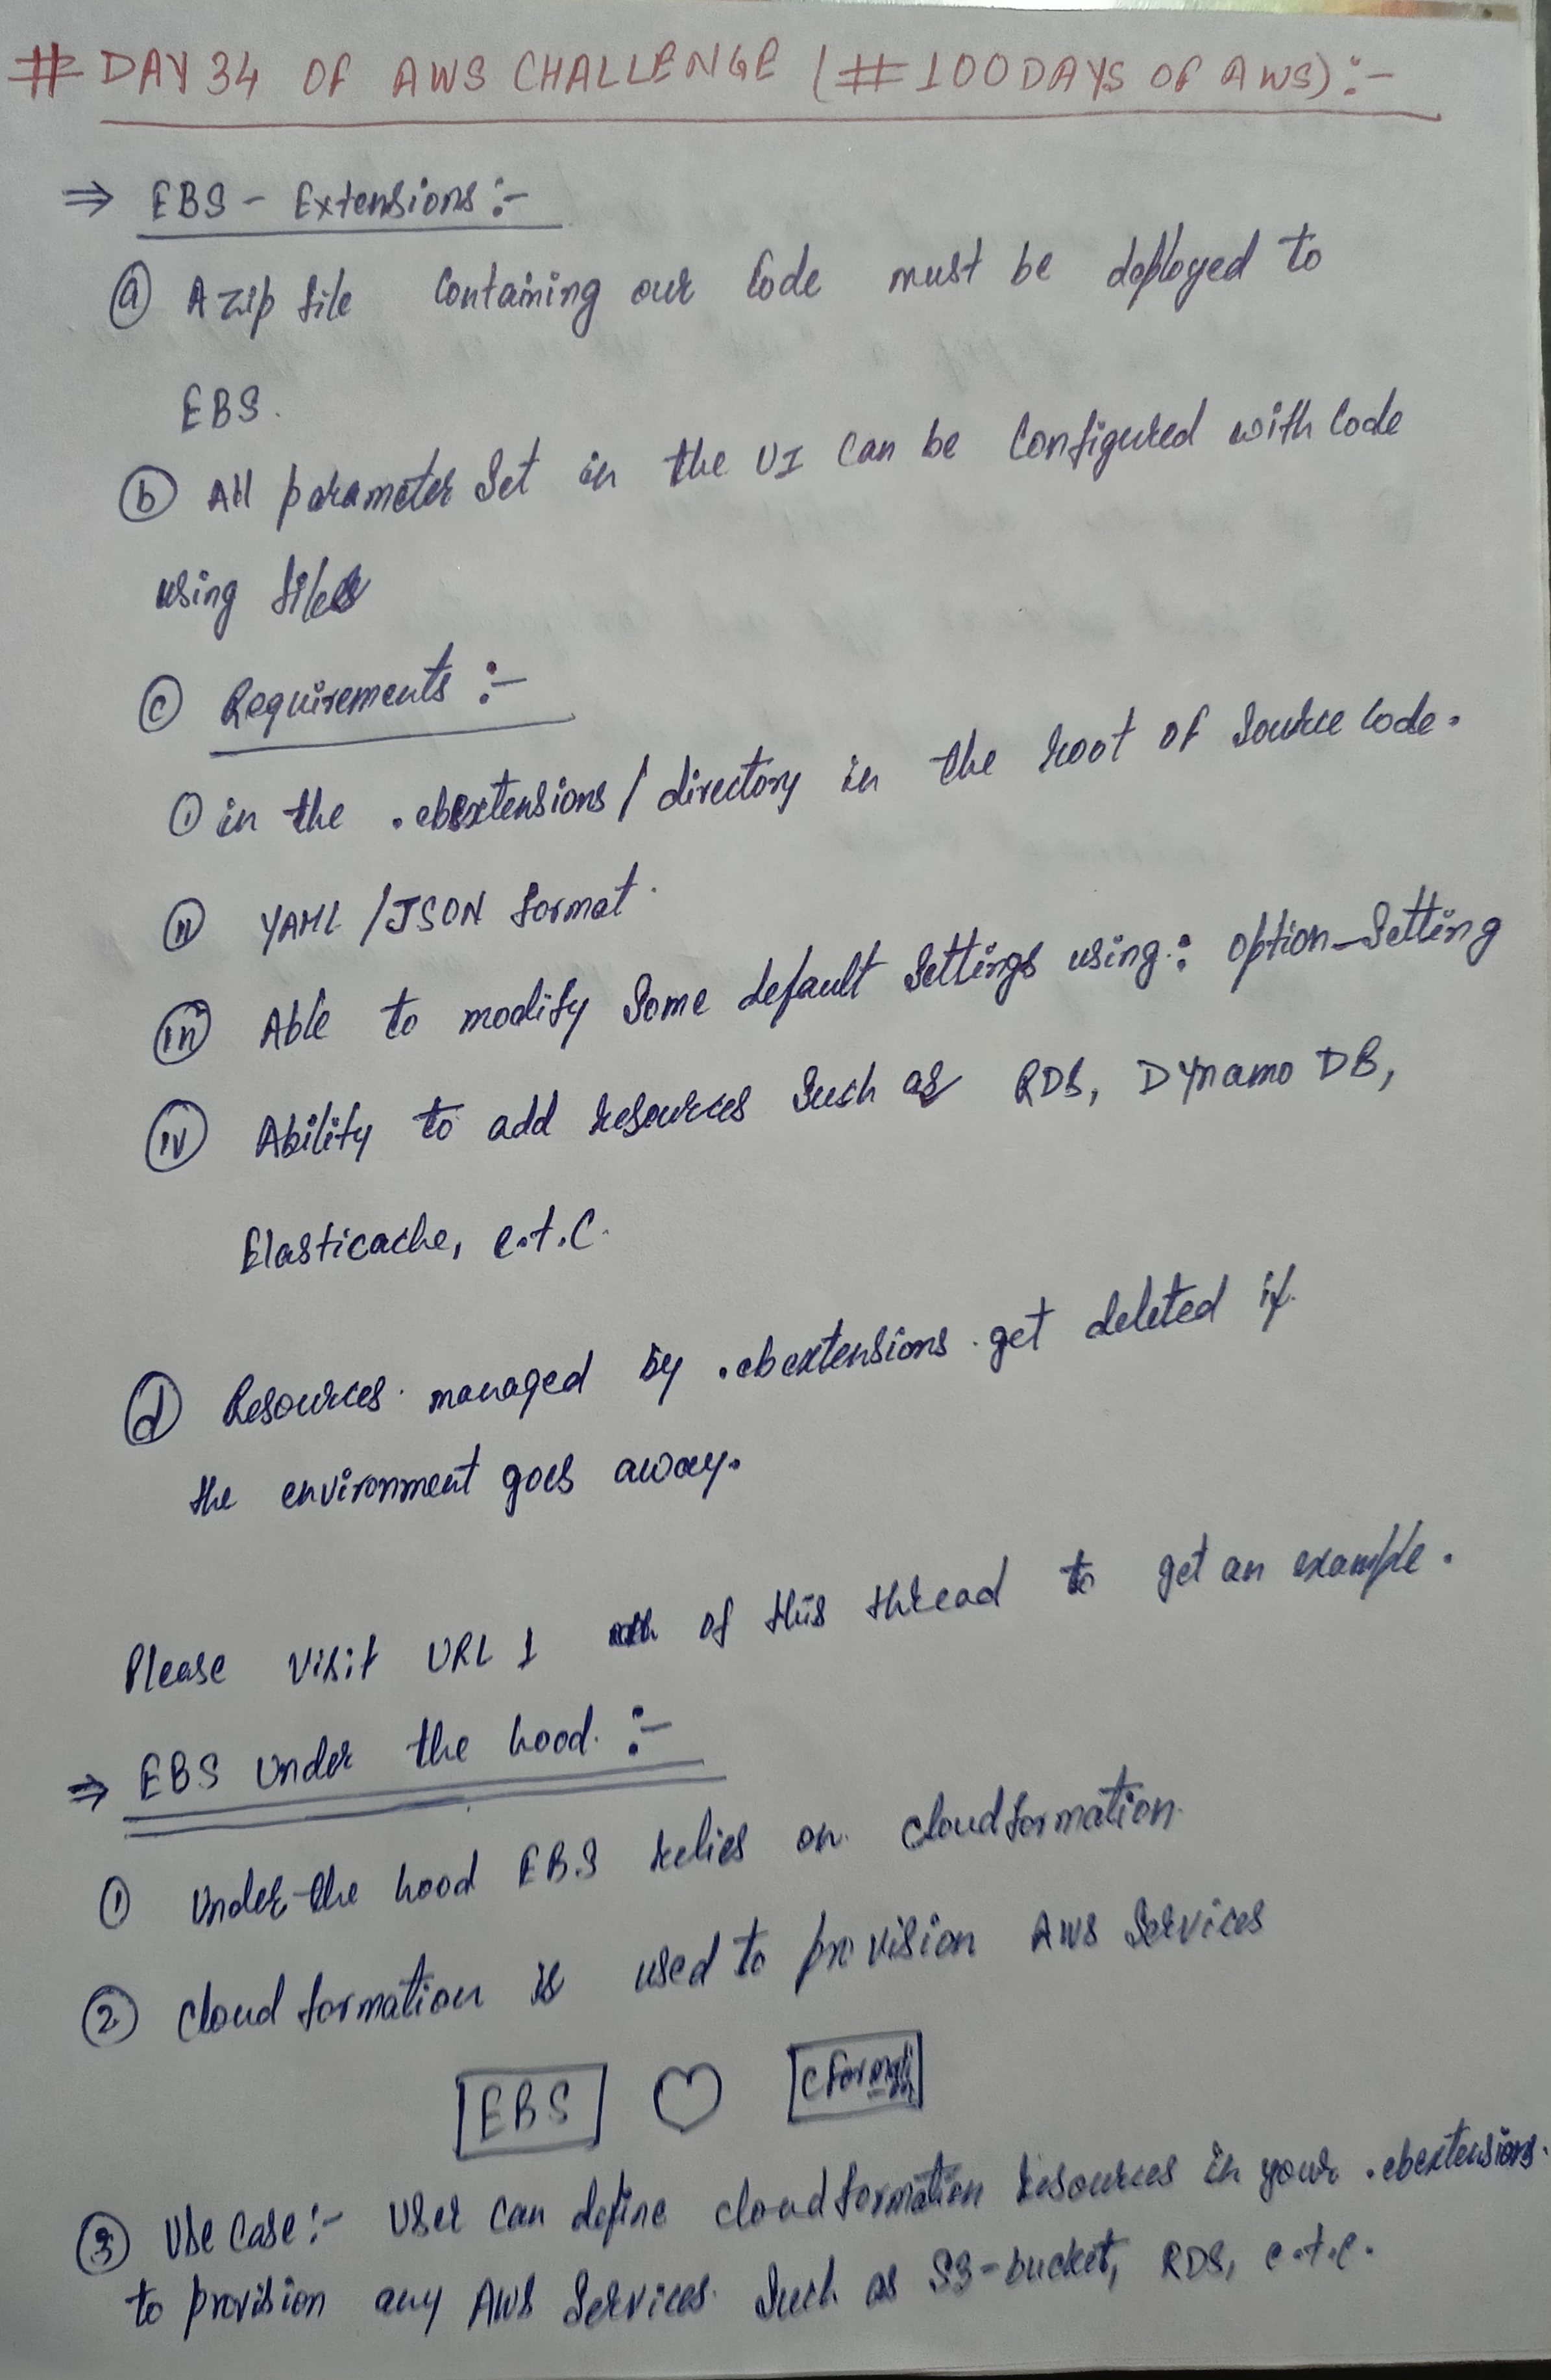 # DAY 34 OF AWS CHALLENGE (#100DAYS OF AWS):-
⇒ EBS - Extensions :-
(a) A zip file containing our Code must be deployed to
EBS.
(b) All parameter set in the UI can be configured with Code
using files
(c) Requirements :-
(i) in the .ebextensions/directory in the root of source code.
(ii) YAML /JSON format.
(iii) Able to modify some default settings using: option_setting
(iv) Ability to add resources such as RDS, Dynamo DB,
Elasticache, e.t.c.
(d) Resources managed by .ebextensions get deleted if
the environment goes away.
Please visit URL 1 of this thread to get an example.
⇒ EBS under the hood :-
(1) Under-the hood EBS relies on cloudformation.
(2) cloud formation is used to provision AWS services
EBS ♡ cformation
(3) Use Case :- User can define cloudformation resources in your .ebextensions.
to provision any AWS services. Such as S3-bucket, RDS, e.t.c.